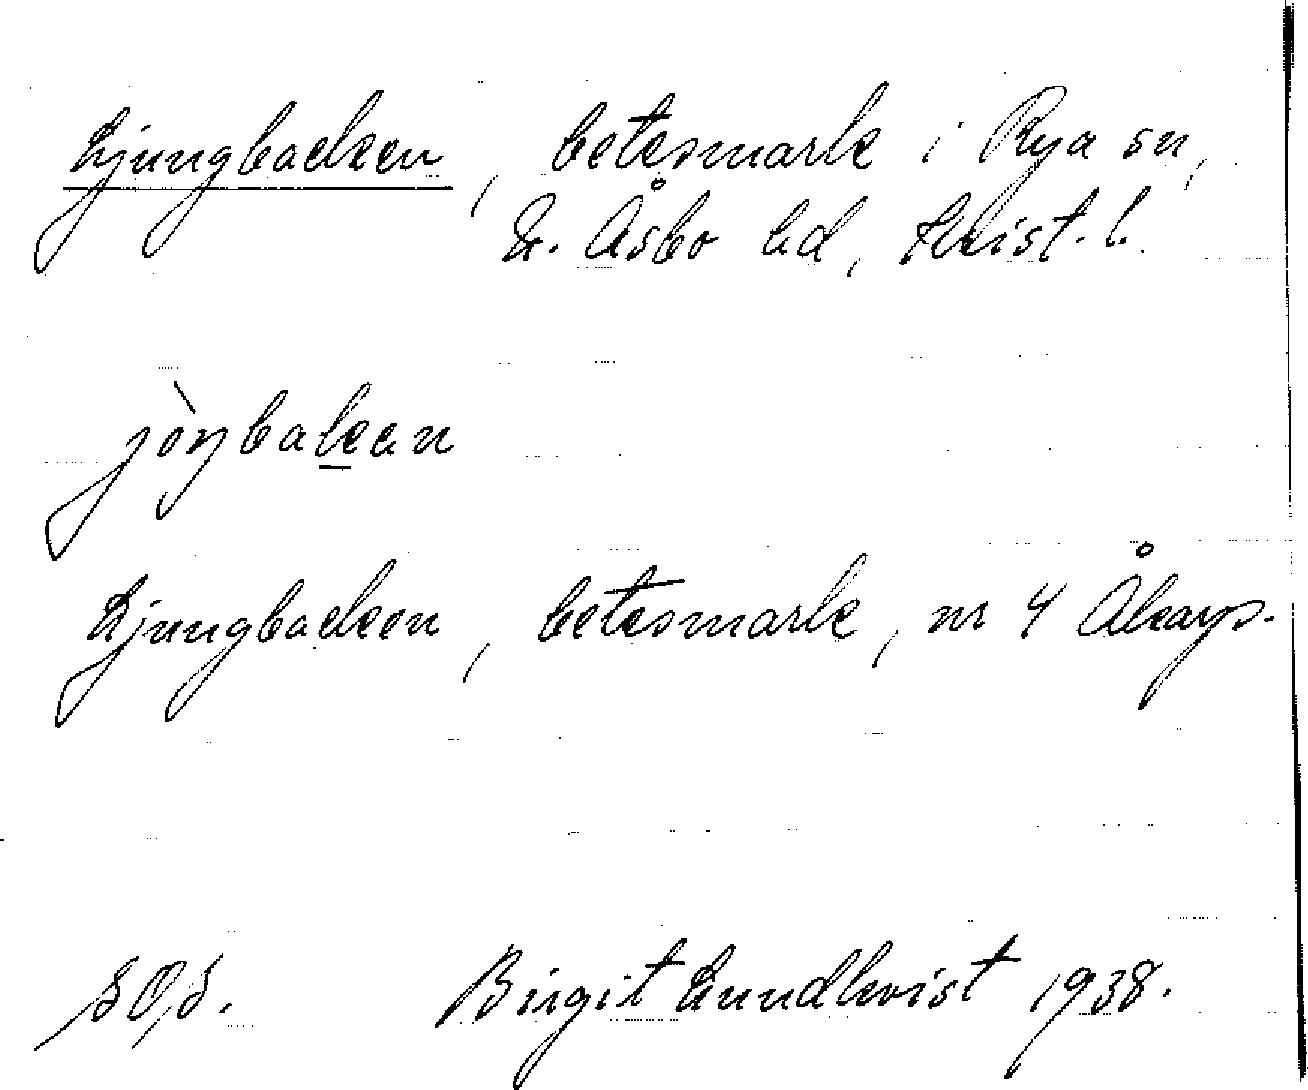 Ljungbacken, betesmark i Rya sn,
N. Åsbo hd, Krist. l.
jòŋbakan
Ljungbacken, betesmark, nr 4 Åkarps-
Birgit Lundkvist 1938.